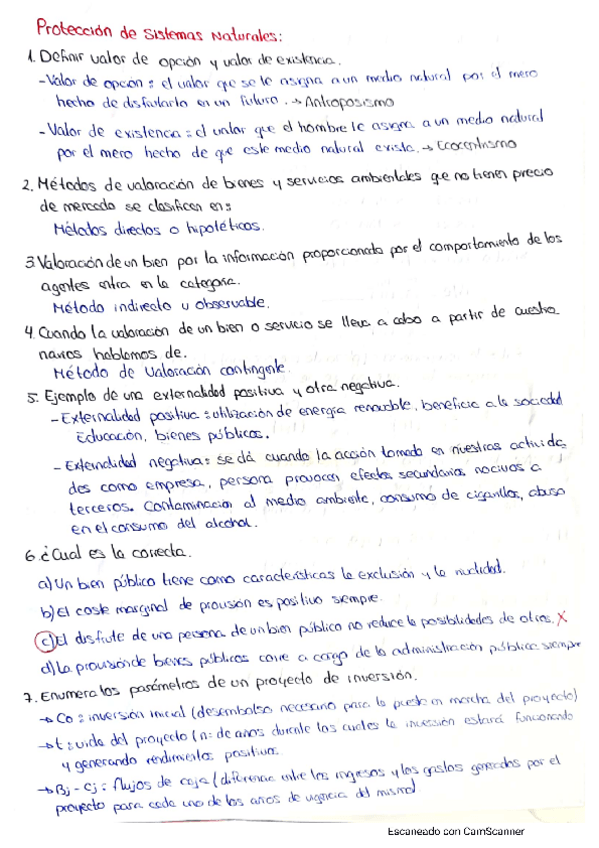 Protección de Sistemas Naturales:
1. Definir valor de opción y valor de existencia.
- Valor de opción: el valor que se le asigna a un medio natural por el mero
hecho de disfrutarlo en un futuro. → Antroposismo
- Valor de existencia: el valor que el hombre le asigna a un medio natural
por el mero hecho de que este medio natural exista. → Ecocentrismo
2. Métodos de valoración de bienes y servicios ambientales que no tienen precio
de mercado se clasifican en:
Métodos directos o hipotéticos.
3. Valoración de un bien por la información proporcionada por el comportamiento de los
agentes entra en la categoría.
Método indirecto u observable.
4. Cuando la valoración de un bien o servicio se lleva a cabo a partir de cuestio
narios hablamos de.
Método de Valoración contingente.
5. Ejemplo de una externalidad positiva y otra negativa.
- Externalidad positiva: utilización de energía renovable, beneficia a la sociedad
Educación, bienes públicos.
- Externalidad negativa: se dá cuando la acción tomada en nuestras activida
des como empresa, persona provocan efectos secundarios nocivos a
terceros. Contaminación al medio ambiente, consumo de cigarrillos, abuso
en el consumo del alcohol.
6. ¿Cual es la correcta.
a) Un bien público tiene como características la exclusión y la rivalidad.
b) El coste marginal de provisión es positivo siempre.
c) El disfrute de una persona de un bien público no reduce la posibilidades de otros. X
d) La provisión de bienes públicos corre a cargo de la administración pública siempre
7. Enumera los parámetros de un proyecto de inversión.
→ Co: inversión inicial (desembolso necesario para la puesta en marcha del proyecto)
→ t: vida del proyecto (nº de años durante los cuales la inversión estará funcionando
y generando rendimientos positivos.
→ Bj - Cj: flujos de caja (diferencia entre los ingresos y los gastos generados por el
proyecto para cada uno de los años de vigencia del mismo)
Escaneado con CamScanner